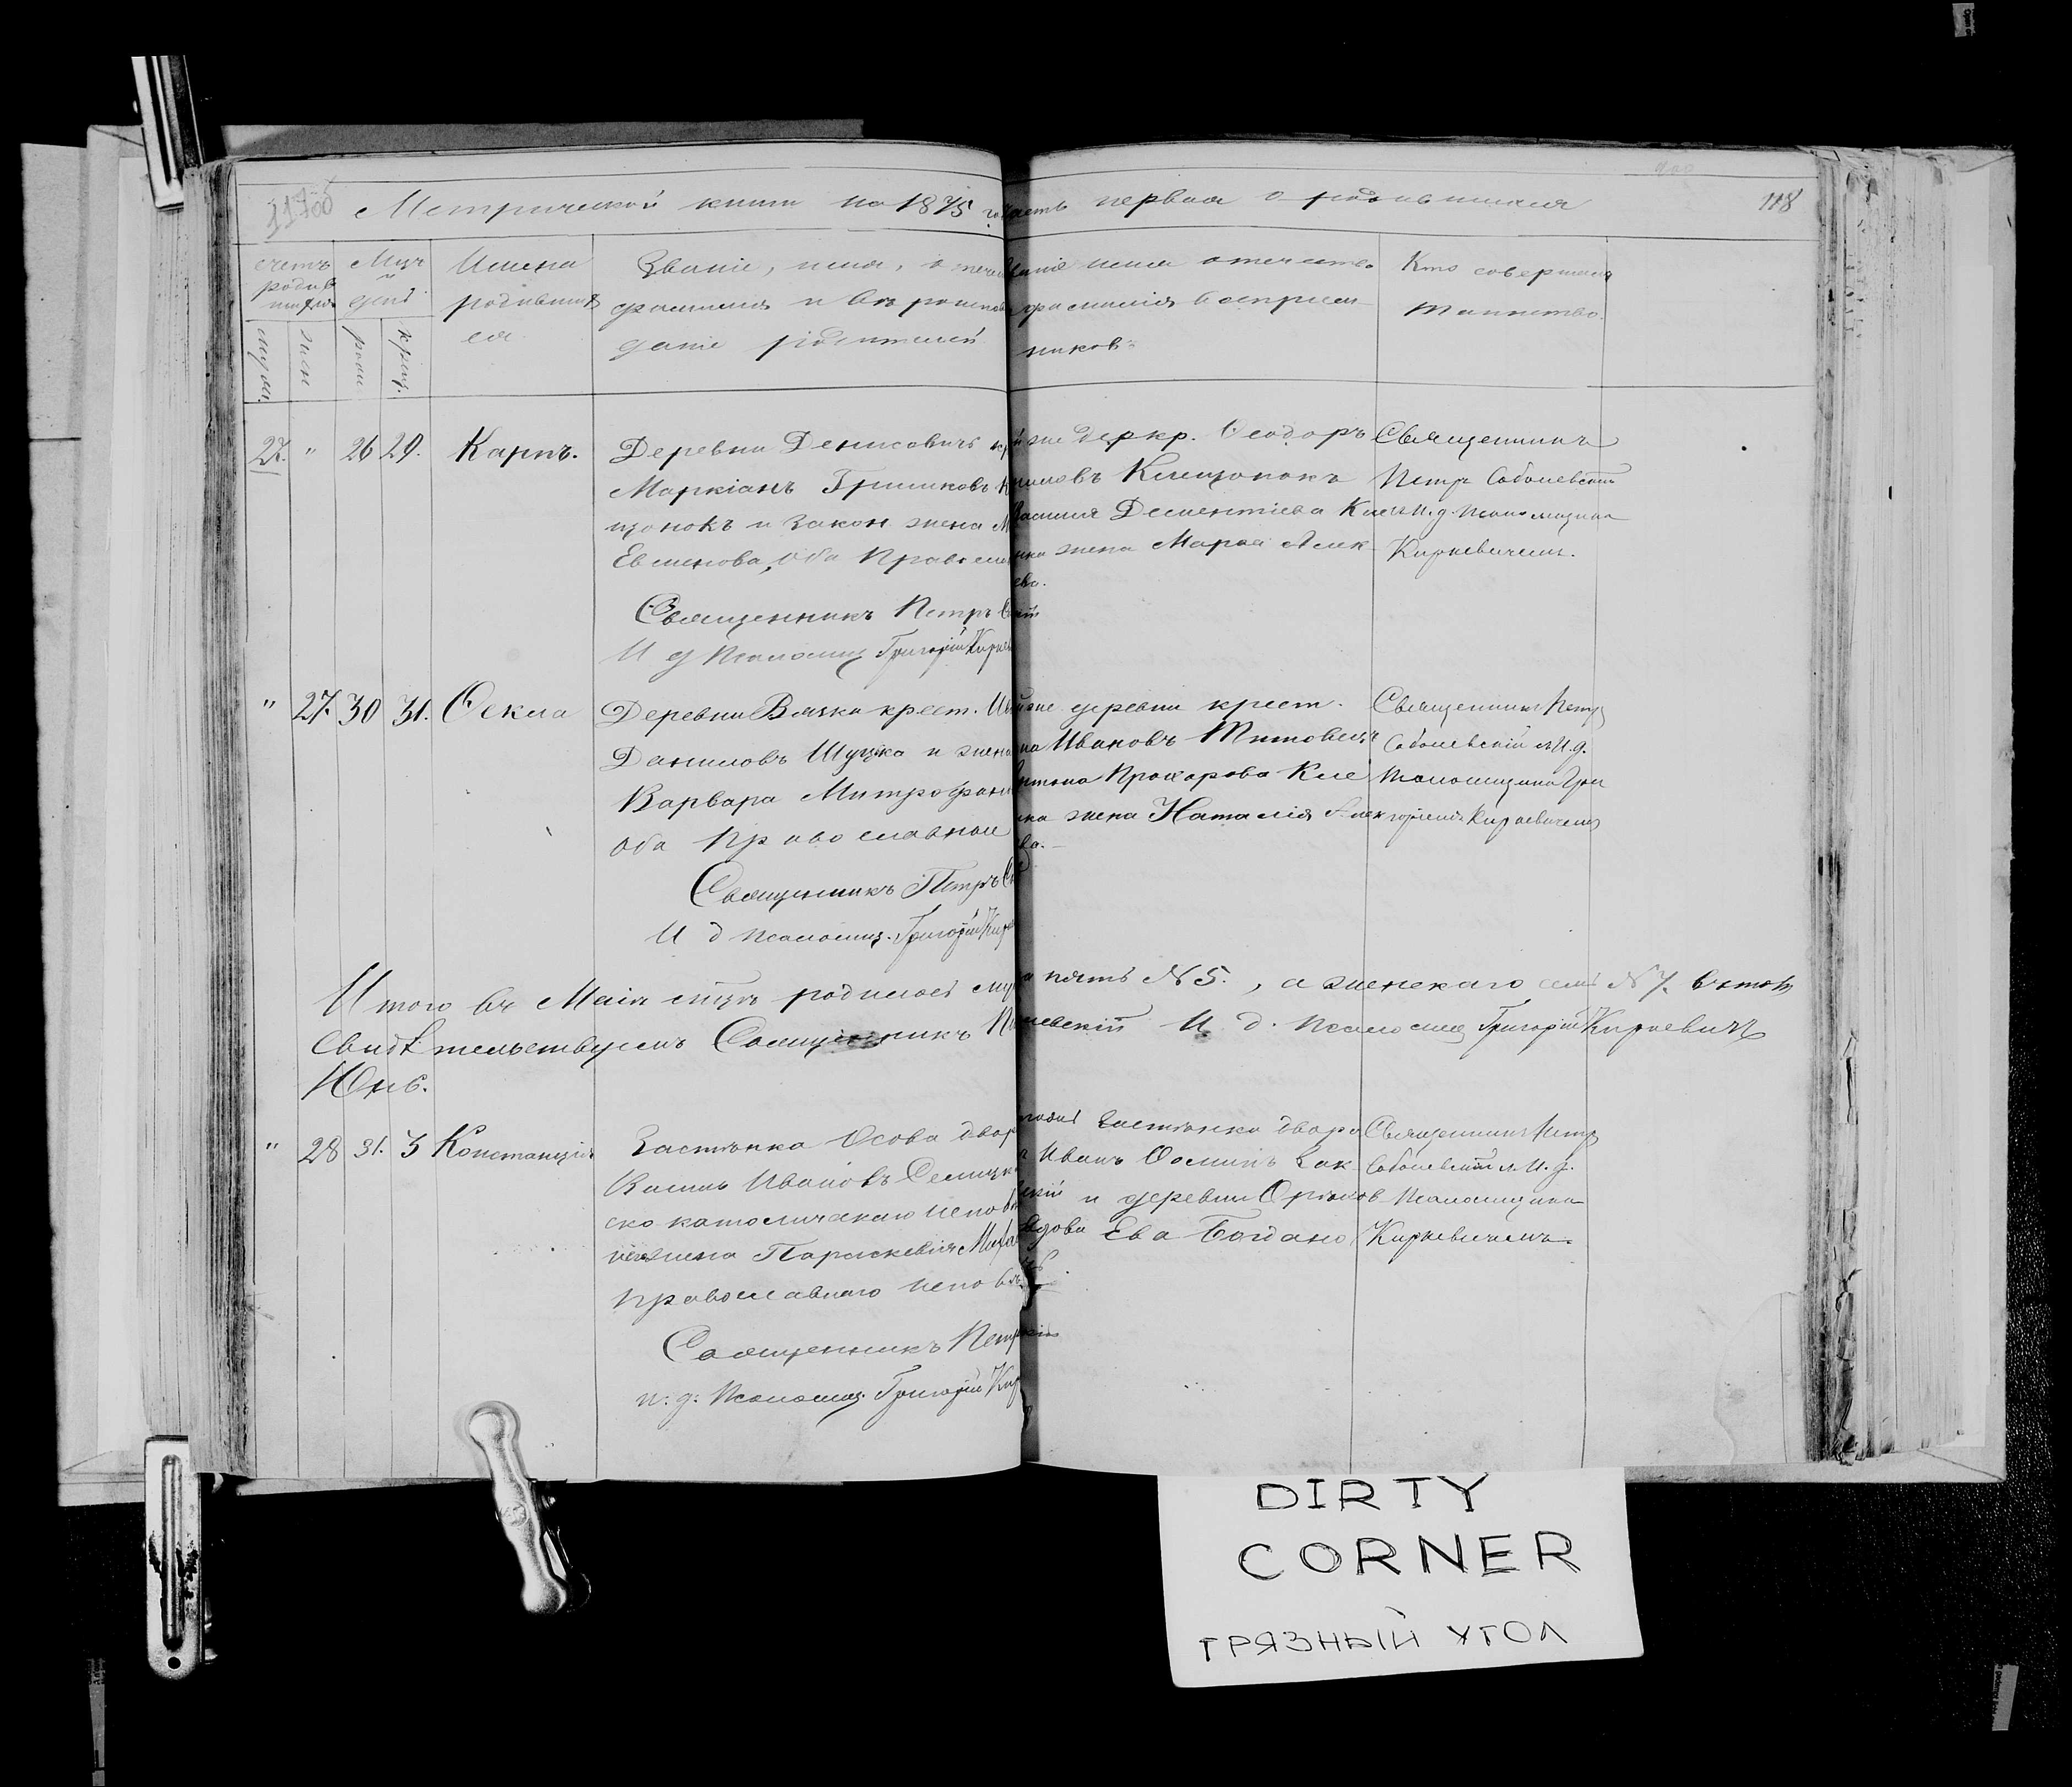 117об
Метрической книги на 1875 го часть первая о родившихся
118
счетъ родив шихся
муж. жен
Мцъ й дній
рожд крещ.
Имена
родивших
ся
Званіе, имя, отече
фамилія и вѣроиспов
даніе родителей
ваніе имя отечество
фамилія воспріем
никовъ
Кто совершалъ
таинство.
27. " 26 29. Карпъ.
Деревни Денисовичъ кр
Маркіанъ Гришковъ К
щонокъ и закон жена М
Евменова, оба Православ
Священникъ Петръ С
И д Псаломщ Григорій Кирке
же дер кр. Ѳеодоръ
Клещонокъ
Дементіева Кле
жена Марѳа Алек
ева.
Священникъ
Петръ Соболевскій
съ И. д. Псаломщика
Киркевичемъ.
" 27. 30 31. Ѳекла
Деревни Вязки крест. Ив
Даниловъ Шуцка и жена
Варвара Митрофан
оба православные
Священникъ Петръ Со
И д псаломщ. Григорій Кирк
же деревни крест.
Ивановъ Титовецъ
Антона Прохорова Кле
жена Наталія Алек
ва.
Священникъ Петр
Соболевскій съ И. д.
Псаломщика Гри
горіемъ Киркевичемъ
Итого въ Маѣ мцѣ родилось муж
пять N 5., а женскаго семь N 7. въ томъ
Свидѣтельствуемъ Священникъ П
левскій И. д. Псаломщ Григорій Киркевичъ
Юнь.
" 28 31. 3 Констанція
Застѣнка Осова двор
Иванов
ско католическаго испов
жена Параскевія Миха
православнаго испов
Священникъ Петр
и. д. Псаломщ. Григорій Кир
застѣнка дворя
Иванъ Осипивъ Зак
и деревни
вдова Ева Богдано
Священникъ Петр
Соболевскій съ И. д.
Псаломщика
Киркевичемъ.
DIRTY
CORNER
ГРЯЗНЫЙ УГОЛ